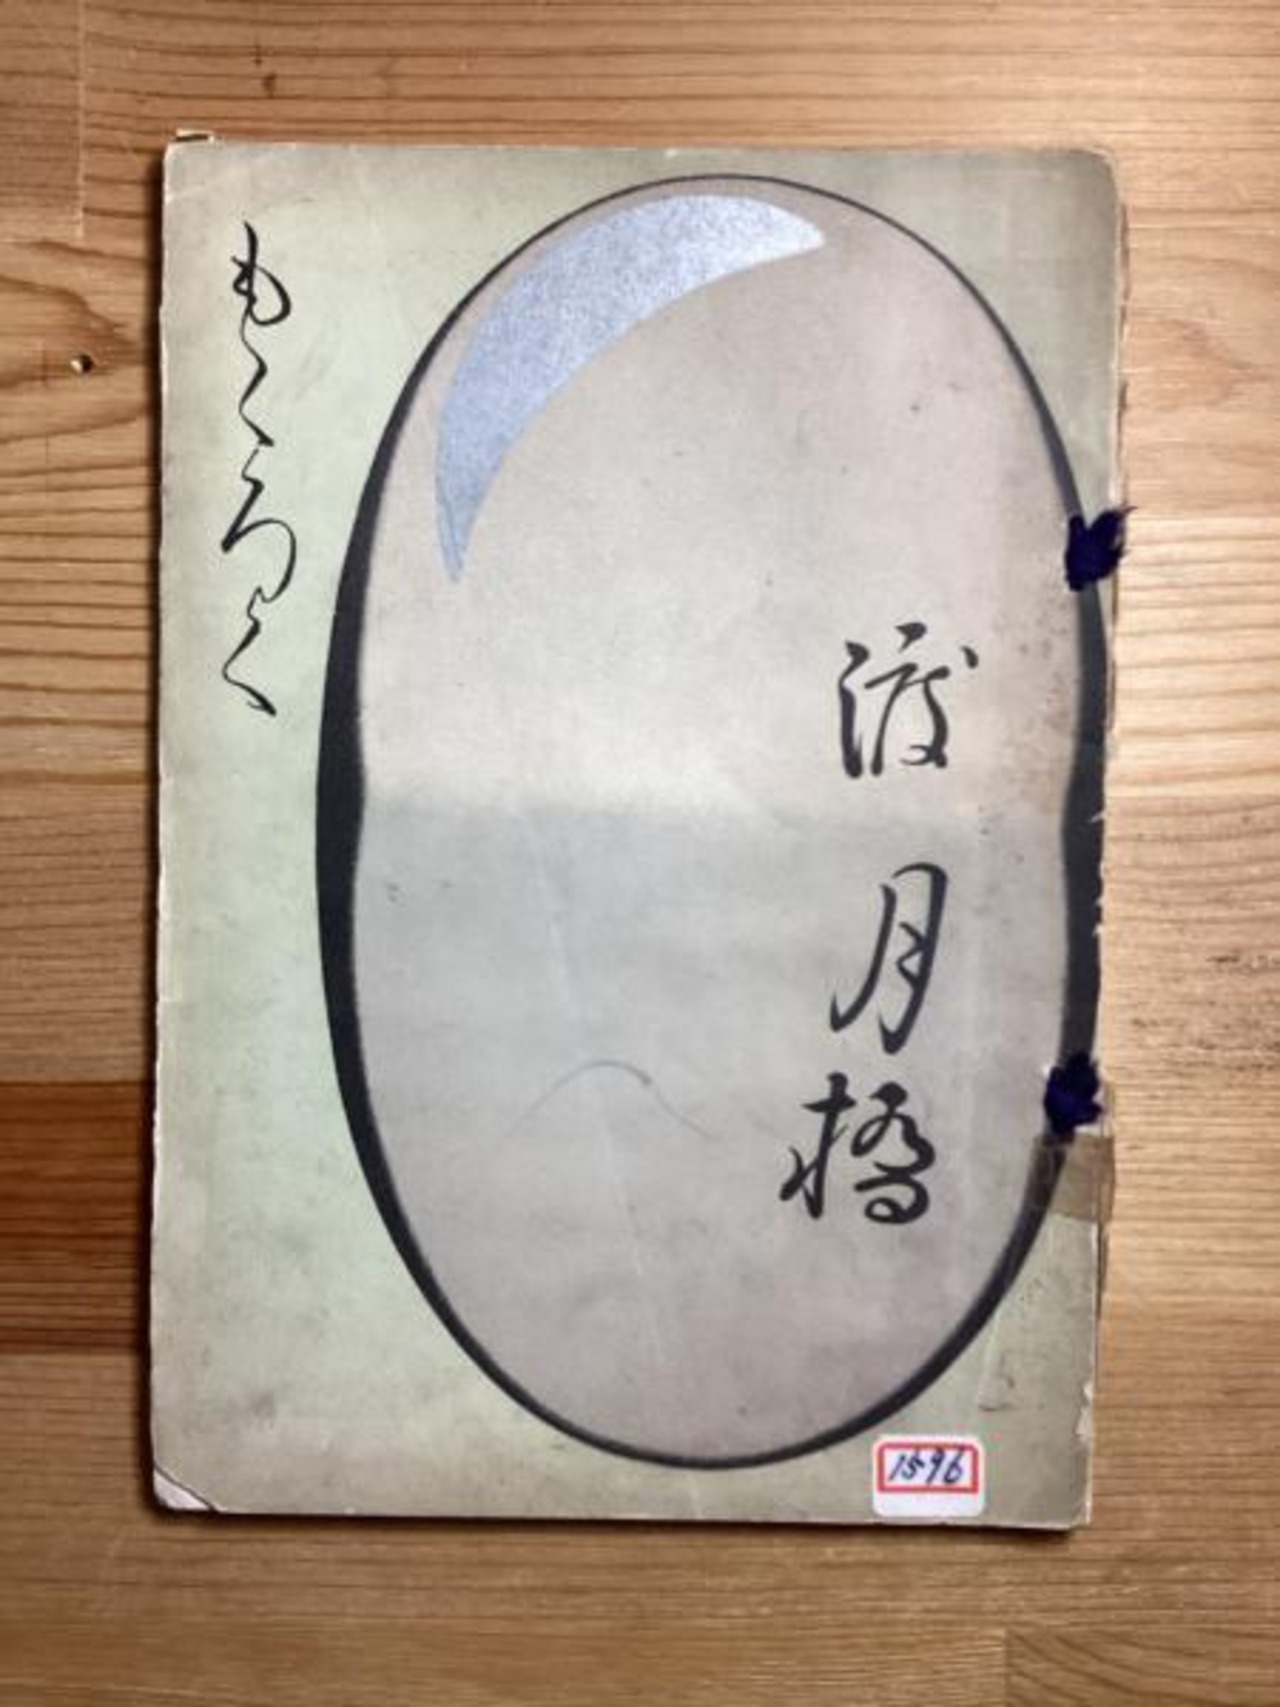 渡月橋
もくろく
1596